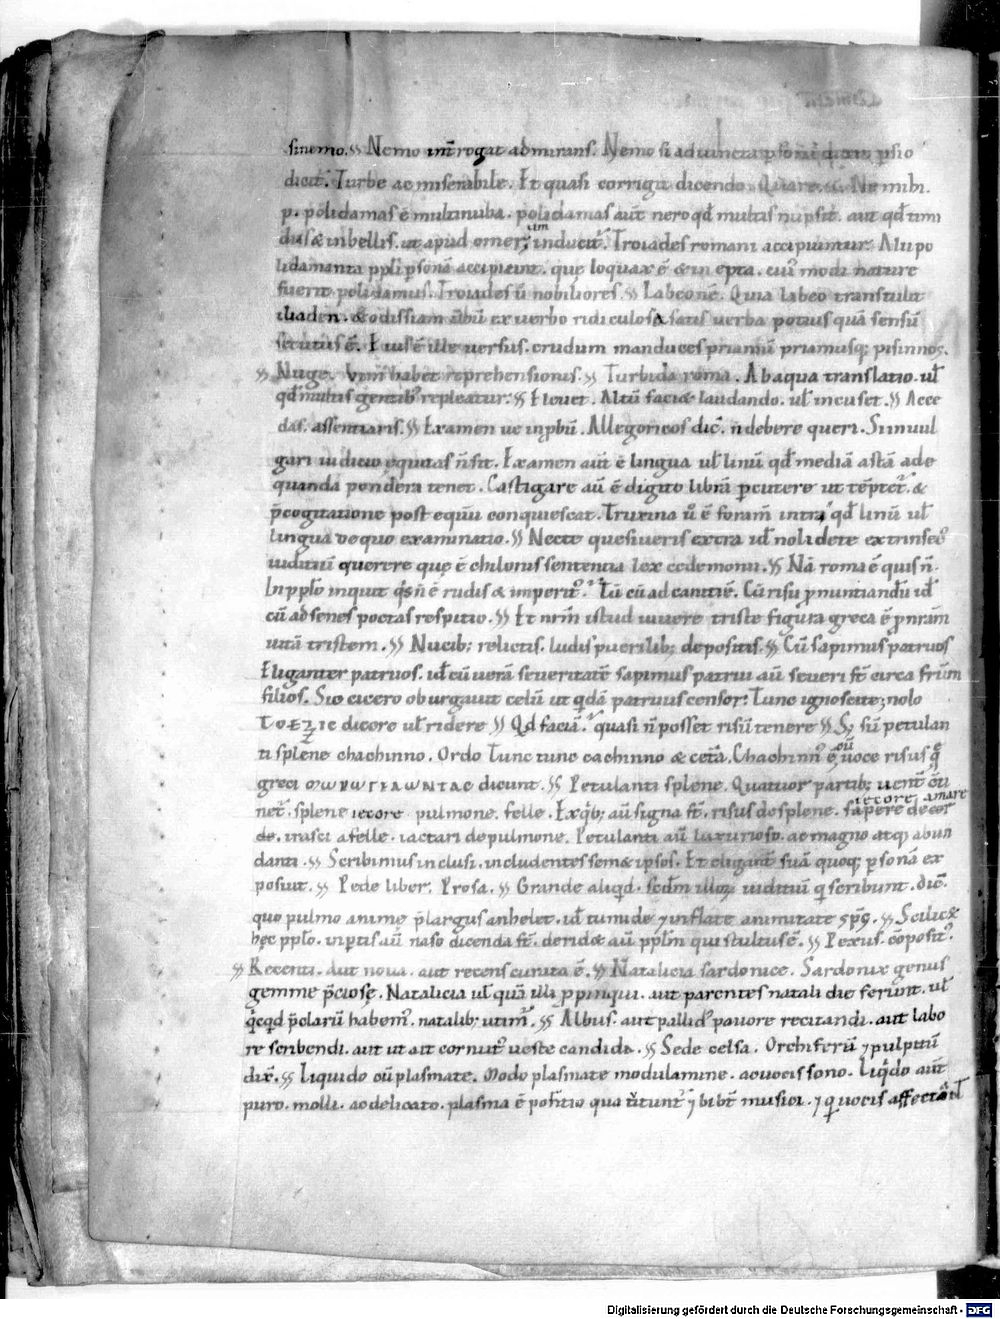 sinemo. Nemo int̄rogat admirans. Nemo si adiuncta psio
dicit̄. Turbe ac miserabile. Et quasi corrigit dicendo. Quare. Ne mihi.
p. polidamas ē multinuba. polidamas aut̄ nero qđ multis nupsit. aut qđ timi
dus & inbellis. ut apud omer, inducit̄. Troiades romani accipiuntur. Alii po
lidamanta ppłi psonā accipiunt. quę loquax ē & inepta. cui' modi nature
fuerit polidamus. Troiades ū nobiliores. Labeonē. Quia labeo transtulit
iliaden. & odissiam ūbū ex uerbo ridiculosa satis uerba potius quā sensū
secutus ē. Eius ē ille uersus. crudum manduces priamū priamusq; pisinnos.
Nuge. Vim habet reprehensionis. Turbida roma. Ab aqua translatio. uł
qđ multis gentib' repleatur. Eleuet. Altū faciat laudando. uł incuset. Acce
das. assentiaris. Examen ue inpbū. Allegoricos dic̄. n̄ debere queri. Si in uul
gari iudicio equitas n̄ sit. Examen aut̄ ē lingua uł linū qđ mediā astā ade
quanda pondera tenet. Castigare aū ē digito librā pcutere ut tēptet̄. &
p̄cogitatione post equū conquiescat. Truxina ū ē foram̄ intra qđ linū uł
lingua de quo examinatio. Necte quesiueris extra uł noli dete extrinsec'
iuditiū querere quę ē chilonis sententia lexcedemonii. Nā romę ē quis n̄.
In pplo inquit q's n̄ ē rudis & imperit'. Tū cū ad canitiē. Cū risu p̄nuntiandū uł
cū ad senes poetas respitio. Et nrm̄ istud uiuere triste figura greca ē p nrām
uitā tristem. Nucib; relictis. ludis puerilib; depositis. Cū sapimus patruos
Eliganter patruos. uł cū uerā seueritatē sapimus patrui aū seueri st̄ circa fr̄um
filios. Sic cicero obiurgauit celiū ut q'dā patruus censor. Tunc ignoscite; nolo
dicere uł ridere Qđ faciā. quasi n̄ posset risū tenere Sz sū petulan
ti splene chachinno. Ordo Tunc tunc cachinno & cetā. Chachinn' ē uoce risus q̄
greci dicunt. Petulanti splene. Quatuor partib; uentē
net̄. splene iecore. pulmone. felle. Ex q'b; aū signa st̄. risus de splene. sapere de cor
de. irasci a felle. iactari de pulmone. Petulanti aū luxurioso. ac magno atq; abun
danti. Scribimus inclusi. includentes semet ipsos. Et eligant̄ suā quoq; psonā ex
posuit. Pede liber. Prosa. Grande aliqd. scdm̄ illoꝝ iuditiū q' scribunt. dic̄.
quo pulmo animę p̄largus anhelet. uł tumide ⁊ inflate animitate. Scilicet
hęc pplo. inptis aū naso dicenda st̄. deridet aū pplm̄ qui stultus ē. Pexus. cōposit'.
Recenti. Aut noua. aut recens curata ē. Natalicia sardonice. Sardonix genus
gemme p̄ciosę. Natalicia uł quā illi ppinqui. aut parentes natali die ferunt. uł
q'cqd p̄clarū habem'. natalib; utim̄. Albus. aut pallid' pauore recitandi. aut labo
re scribendi. aut ut ait cornut' ueste candida. Sede celsa. Orchiferū ⁊ pulpitū
dix̄. Liquido cū plasmate. Modo plasmate modulamine. ac uocis sono. Liq'do aūt
puro. molli. ac delicato. plasma ē potitio qua utunt' musici. ⁊ uocis